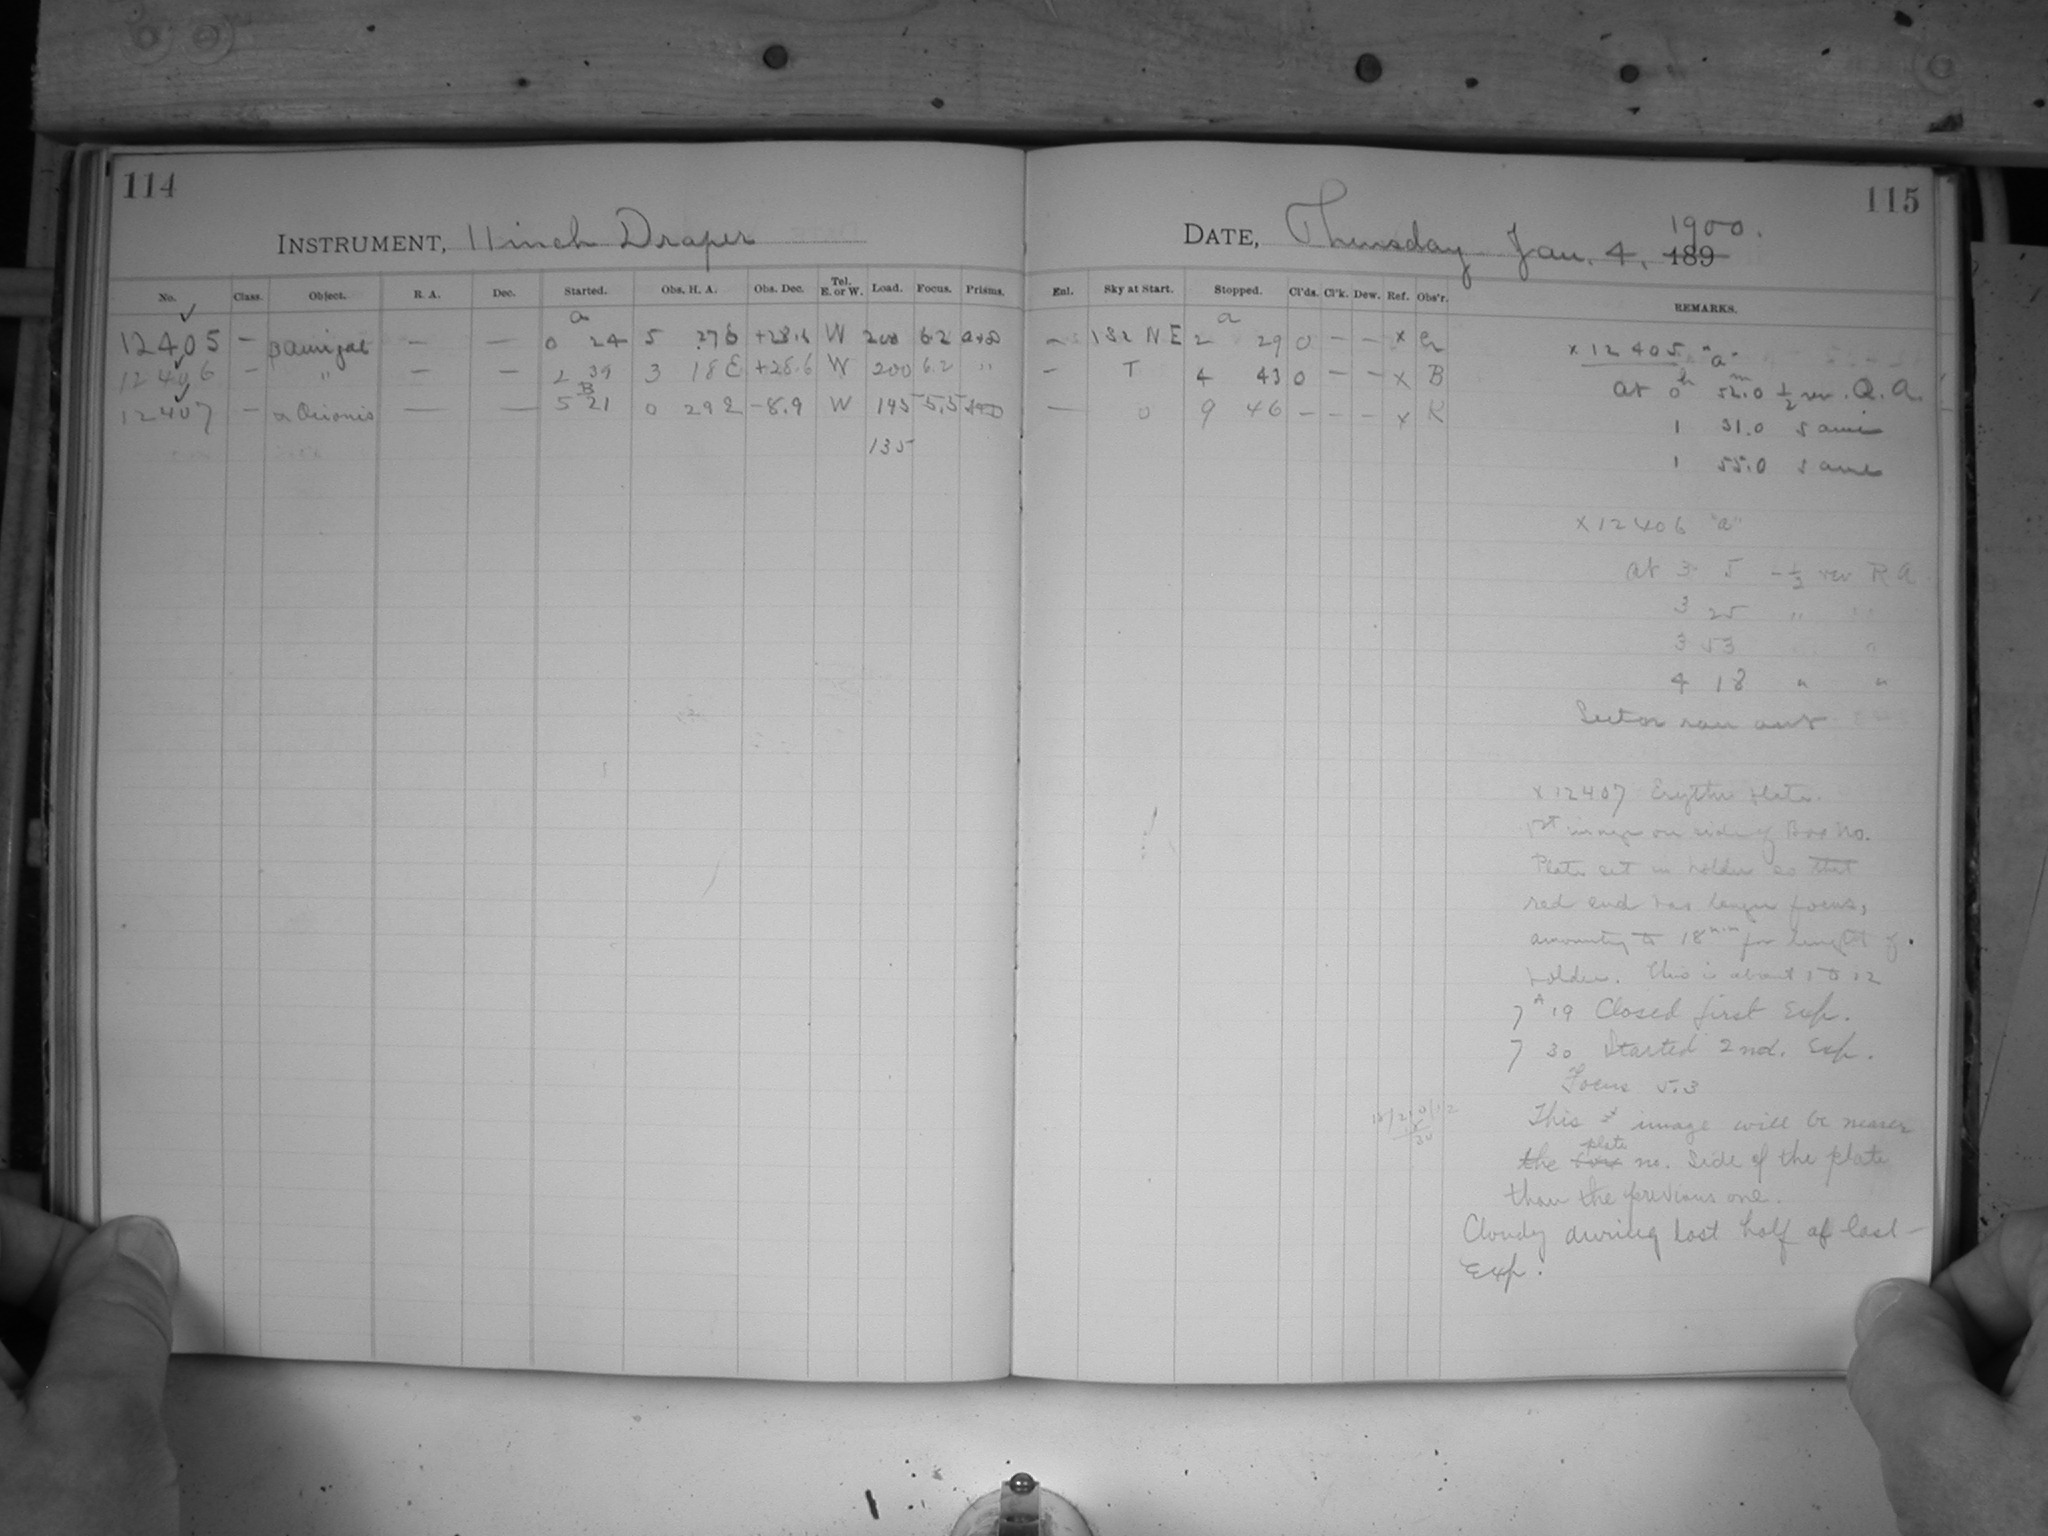 114
INSTRUMENT, 11 inch Draper
No. Class. Object. R. A. Dec. Started. Obs. H. A. Obs. Dec. Tel. E. or W. Load. Focus. Prisms.
a
12405 — β Aurigae — — 0 24 5 27 E +28.6 W 200 6.2
12406 — " — — 2 39 3 18 E +28.6 W 200 6.2 "
B
12407 — — — 5 21 0 29 E -8.9 W 195 5.5
135
115
DATE, Thursday Jan. 4, 1900. 189
Enl. Sky at Start. Stopped. Cl'ds. Cl'k. Dew. Ref. Obs'r. REMARKS.
a
— NE 2 29 0 — — x
— T 4 43 0 — — x B
— 0 9 46 — — — x K
x 12405 "a"
At 0 h 52.0 m ½ rev. R.A.
1 31.0 same
1 55.0 same
x 12406 "a"
At 3 5 -½ rev R A
3 25 " "
3 53 "
4 18 " "
Sector ran out
x 12407 Erythro plate.
1st image on side of Box No.
Plate set in holder so that
red end has longer focus,
amounting to 18 mm for length of
holder. This is about 1 to 12
7 A 19 Closed first Exp.
7 30 Started 2nd. Exp.
Focus 5.3
This image will be nearer
the box plate no. side of the plate
than the previous one.
Cloudy during last half of last
Exp.